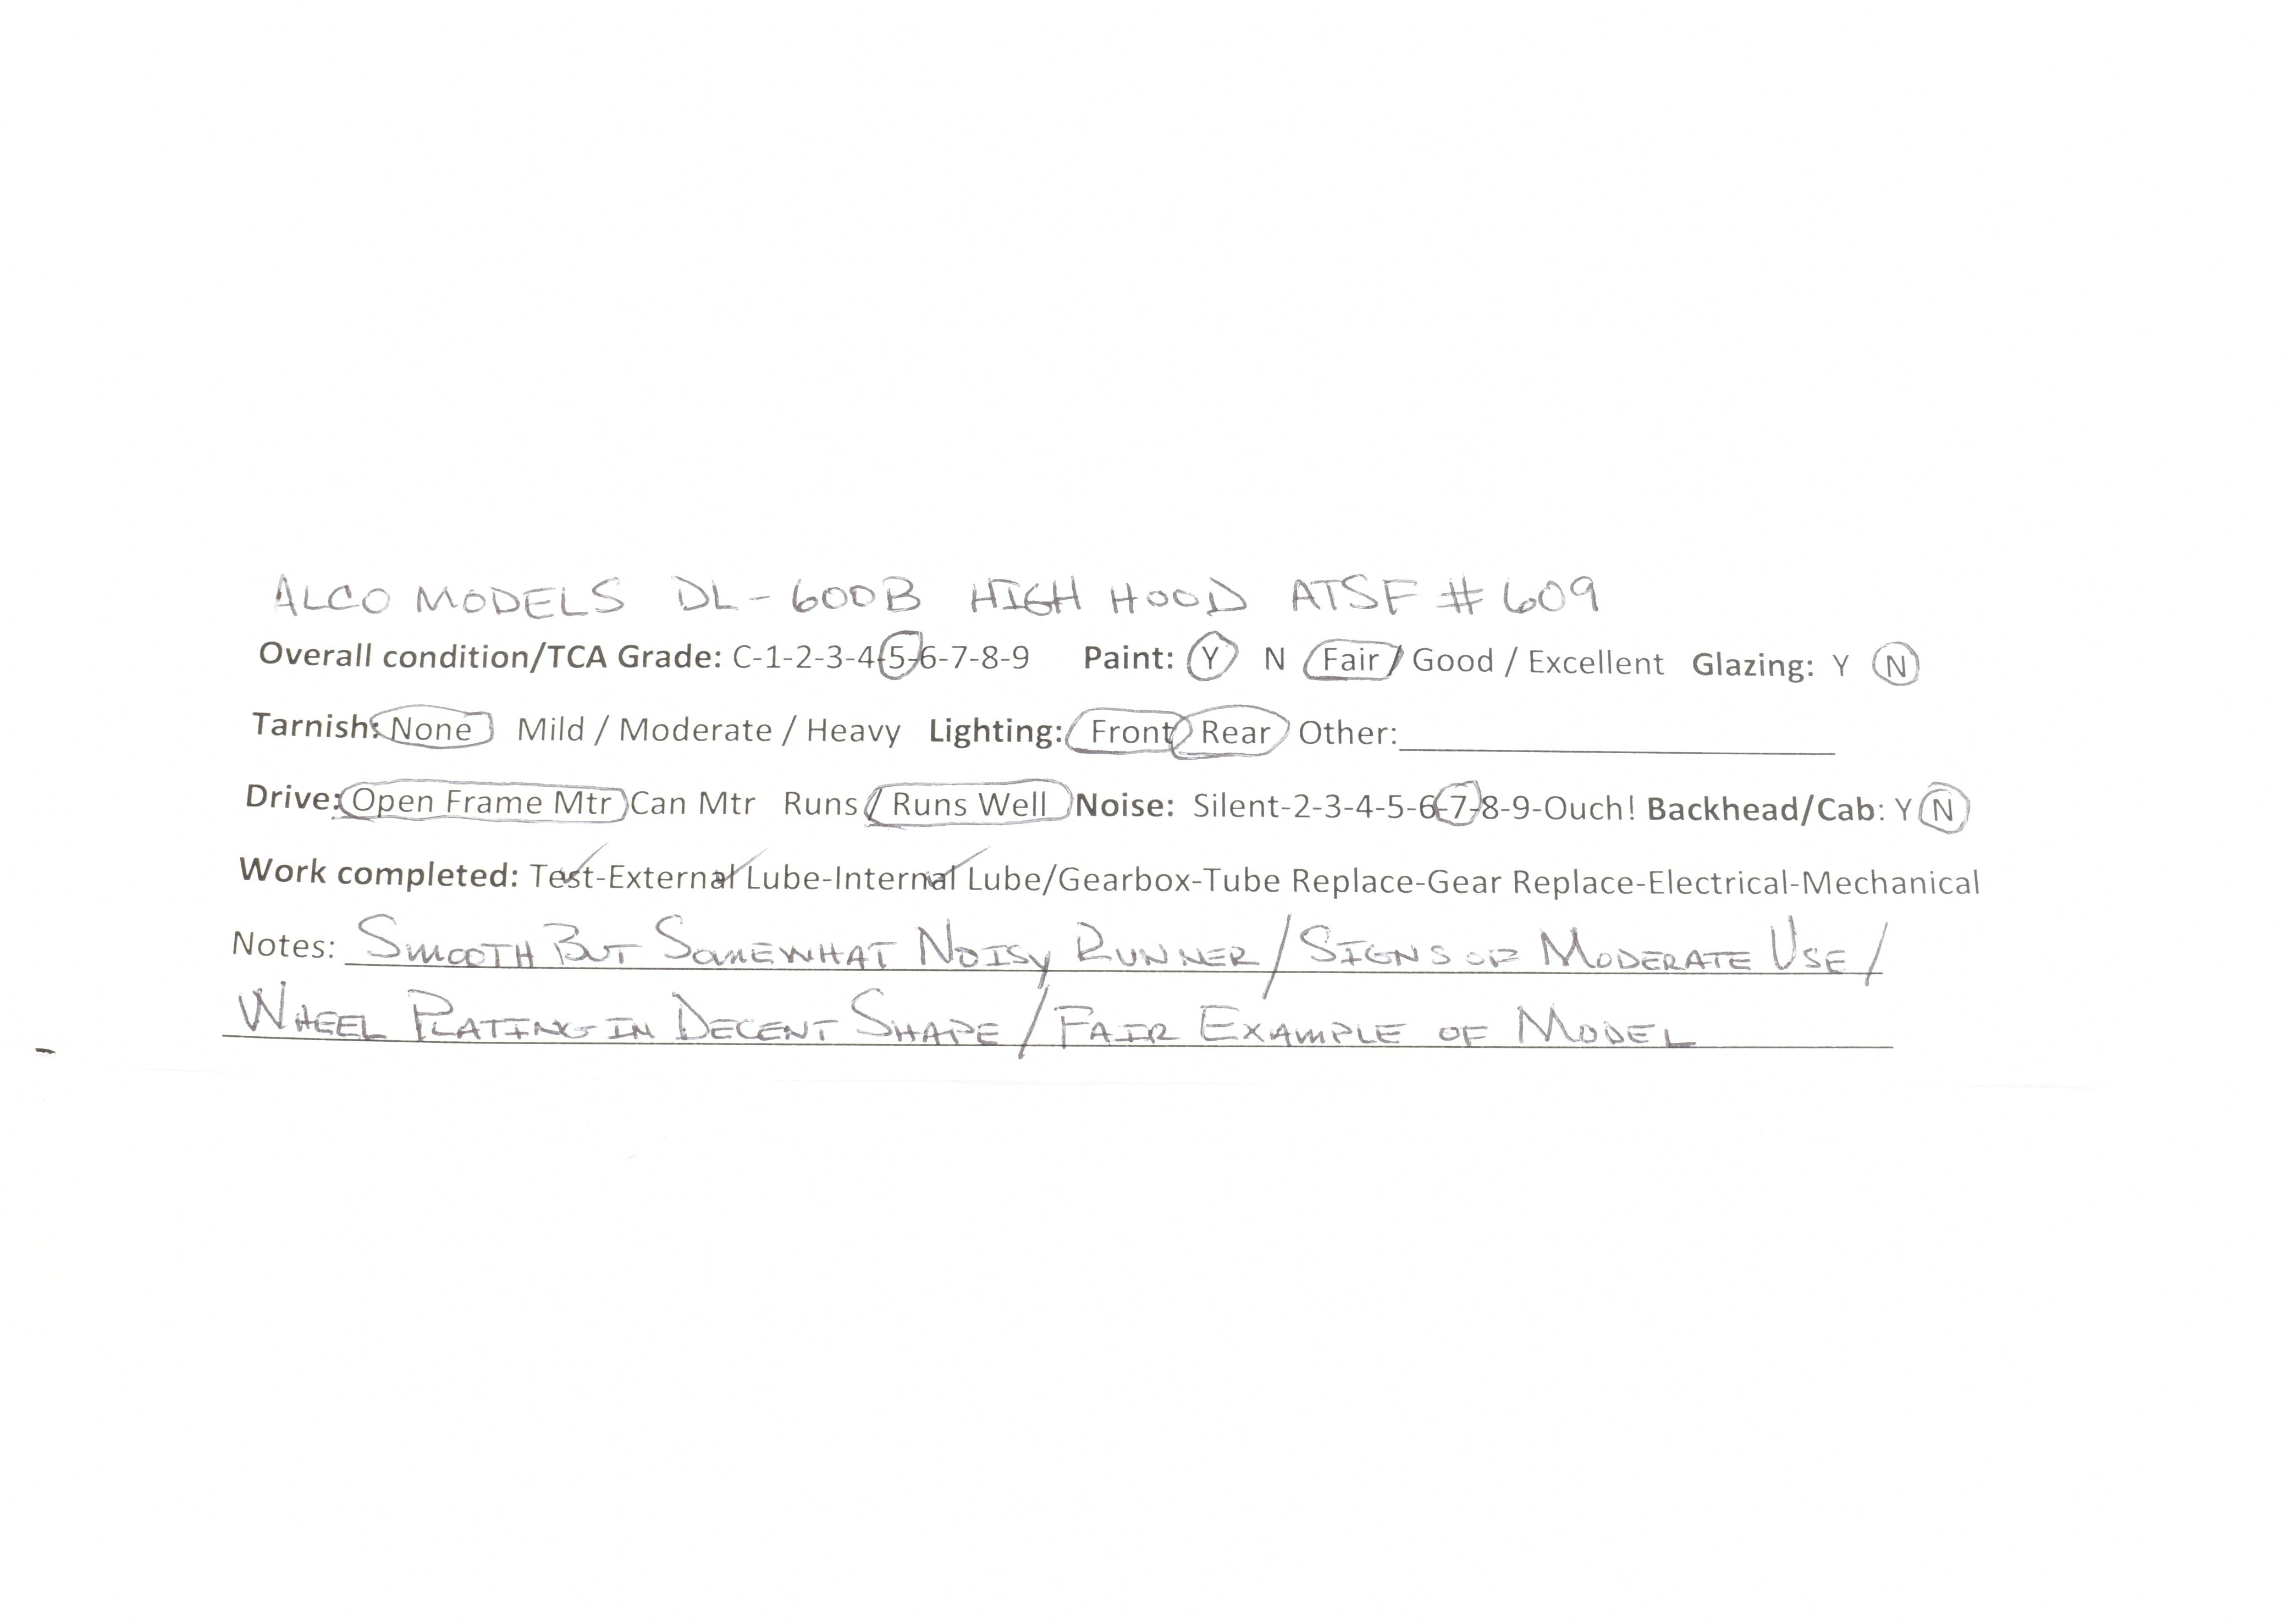 ALCO MODELS DL-600B HIGH HOOD ATSF #609
Overall condition/TCA Grade: C-1-2-3-4-5-6-7-8-9 Paint: Y N Fair / Good / Excellent Glazing: Y N
Tarnish: None Mild / Moderate / Heavy Lighting: Front Rear Other:
Drive: Open Frame Mtr Can Mtr Runs / Runs Well Noise: Silent-2-3-4-5-6-7-8-9-Ouch! Backhead/Cab: Y N
Work completed: Test-External Lube-Internal Lube/Gearbox-Tube Replace-Gear Replace-Electrical-Mechanical
Notes: SMOOTH BUT SOMEWHAT NOISY RUNNER/SIGNS OF MODERATE USE/
WHEEL PLATING IN DECENT SHAPE/FAIR EXAMPLE OF MODEL